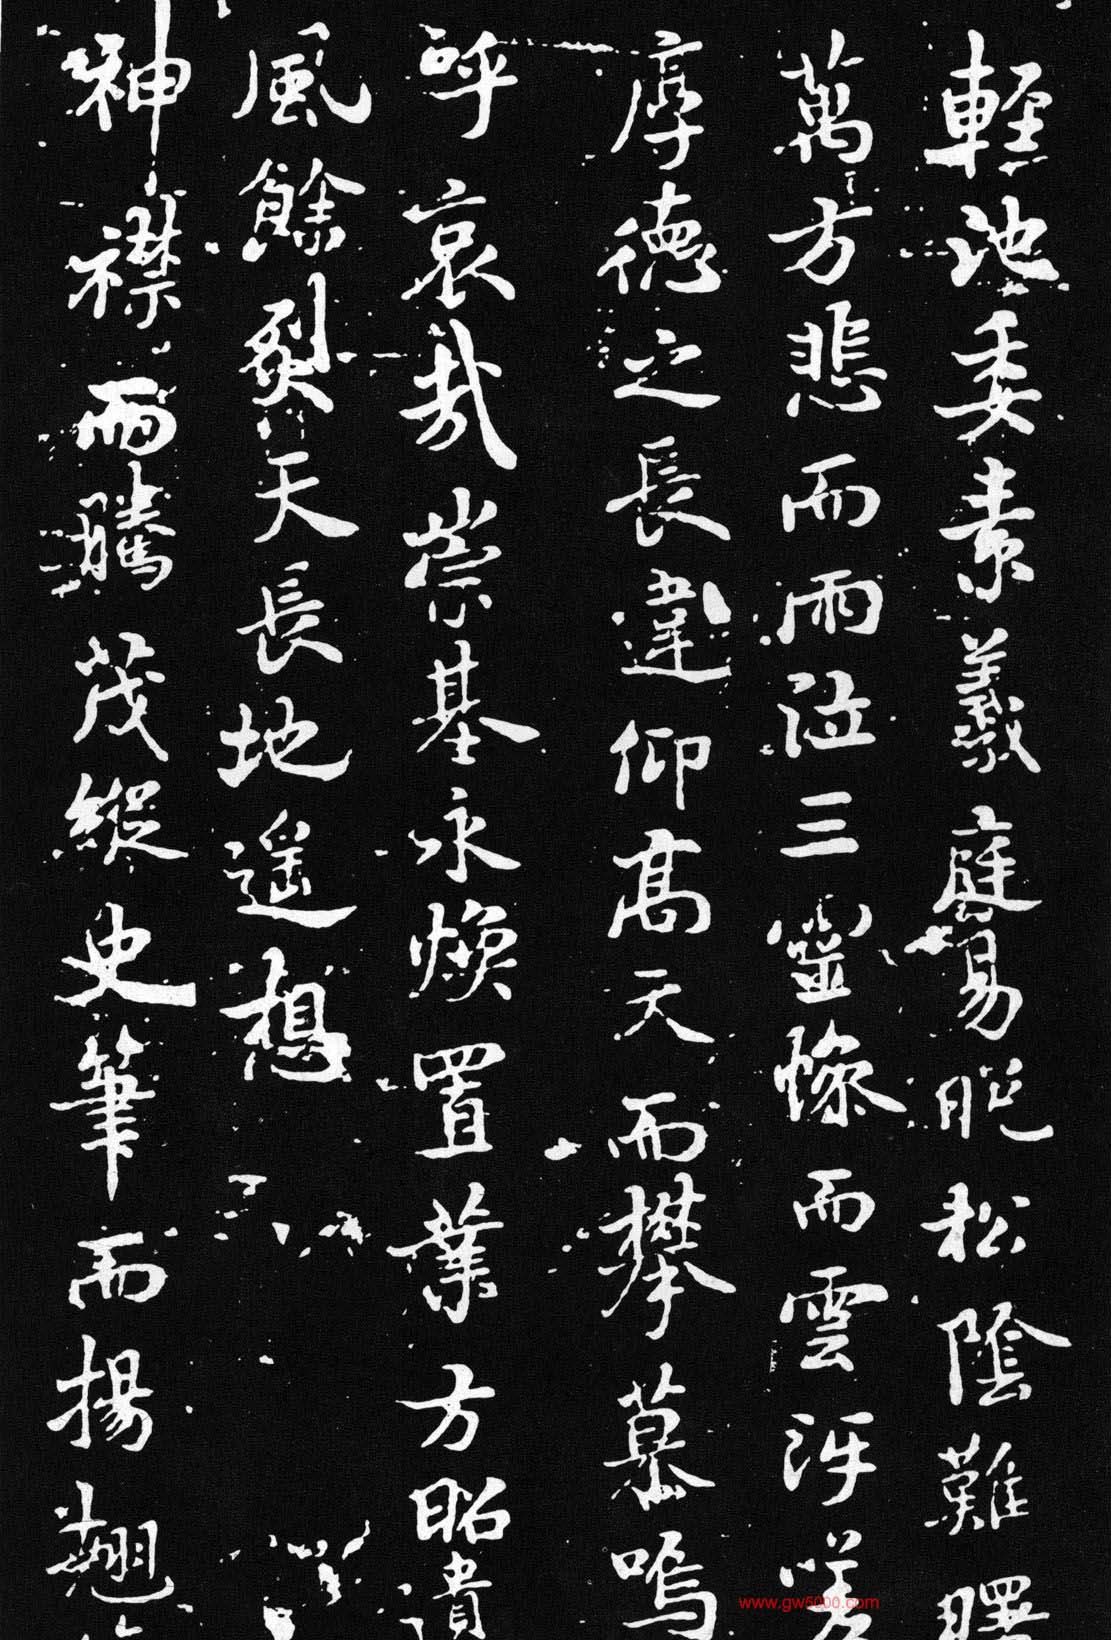 輕池委素羲庭易晚松陰難曙
萬方悲而雨泣三靈慘而雲泝嗟
厚德之長違仰高天而攀慕嗚
呼哀哉崇基永煥置業方昭遺
風餘烈天長地遙想
神襟而騰茂縱史筆而揚翹
www.gw5000.com